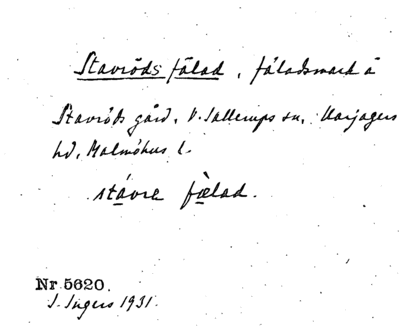 Stavröds fälad, fäladsmark å
Stavröds gård, V. Sallerups sn, Harjagers
hd, Malmöhus l.
stávre fælad.
Nr 5620.
I. Ingers 1931.